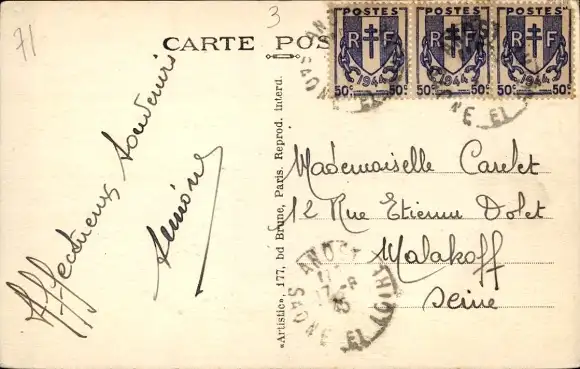 71
3
CARTE POS
POSTES POSTES POSTES
R F R F R F
1944 1944 1944
50c 50c 50c 50c 50c 50c
ANOST
SAONE ET
SAONE ET
Affectueux souvenirs
Simone
«Artistic», 177, bd Brune, Paris. Reprod. interd.
Mademoiselle Carelet
12 Rue Etienne Dolet
Malakoff
Seine
ANOST
17-8
45
SAONE ET LOIRE